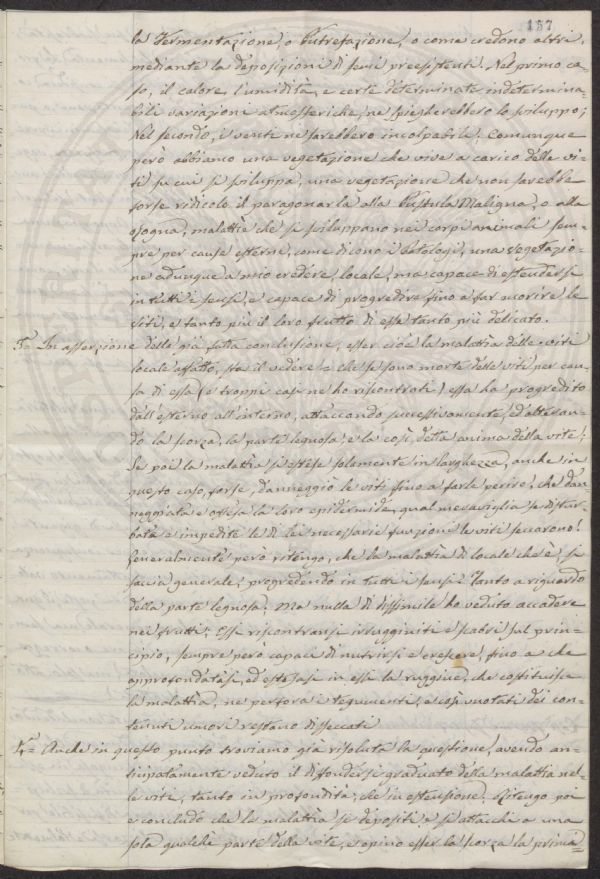 157
la Fermentazione, o Putrefazione, o come credono altri,
mediante la deposizioni di semi preesistenti. Nel primo ca-
so, il calore, l'umidità, e certe determinate indetermina-
bili variazioni atmosferiche, ne spiegherebbero lo sviluppo;
Nel secondo, i venti ne sarebbero incolpabili. Comunque
però abbiamo una vegetazione che vive a carico delle vi-
ti su cui si sviluppa, una vegetazione che non sarebbe
forse ridicolo il paragonarla alla Pustula Maligna, o alla
, malattie che si sviluppano nei corpi animali sem-
pre per cause esterne, come dicono i Patologi, una vegetazio-
ne adunque a mio credere, locale, ma capace di estendersi
in tutti i sensi, e capace di progredire fino a far morire le
Viti, e tanto più il loro frutto di esse tanto più delicato.
3.a In asserzione della già fatta conclusione, esser cioè la malattia delle viti
locale affatto, sta il vedere = che se sono morte delle viti per cau-
sa di essa (e troppi casi ne ho riscontrati) essa ha progredito
dall'esterno all'interno, attaccando successivamente, ed alteran-
do la scorza, la parte legnosa, e la così detta anima della vite;
Se poi la malattia si estese solamente in larghezza, anche in
questo caso, forse, danneggiò le viti fino a farle perire, che dan-
neggiata e offesa la loro epidermide, qual meraviglia se distur-
bate e impedite le di lei necessarie funzioni le viti seccarono!
Generalmente però ritengo, che la malattia di locale che è, si
faccia generale, progredendo in tutti i sensi = Tanto a riguardo
della parte legnosa. Ma nulla di dissimile ho veduto accadere
nei frutti; Essi riscontransi irrugginiti e scabri sul prin-
cipio, sempre però capaci di nutrirsi e crescere, fino a che
approfondatasi, ed estesasi in essi la ruggine, che costituisce
la malattia, ne perfora i tegumenti, e così vuotati dei con-
tenuti umori restano disseccati
4.a = Anche in questo punto troviamo già risoluta la questione, avendo an-
ticipatamente veduto il diffondersi graduato della malattia nel-
le viti, tanto in profondità, che in estensione. Ritengo poi
e concludo che la malattia si depositi, e si attacchi a una
sola qualche parte della vite, e opino esser la scorza la prima-